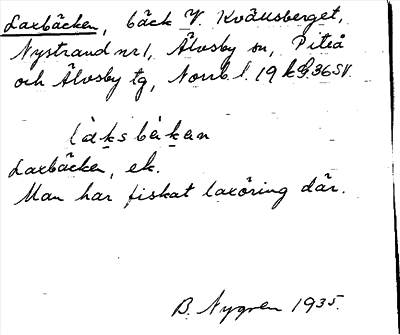 Laxbäcken, bäck V. Kvällsberget,
Nystrand nr 1, Älvsby sn, Piteå
och Älvsby tg, Norrb. l. 19 k G 36 SV.
làksbäkan
Laxbäcken, ek.
Man har fiskat laxöring där.
B. Nygren 1935.